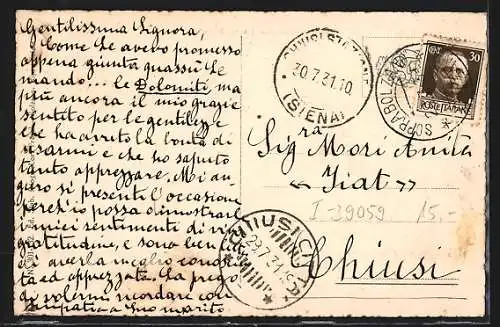 Gentilissima Signora,
Come Le avevo promesso
appena giunta quassù Le
mando... le Dolomiti, ma
più ancora il mio grazie
sentito per le gentilezze
che ha avuto la bontà di
usarmi e che ho saputo
tanto apprezzare. Mi au-
guro si presenti l'occasione
perch'io possa dimostrarLe
i miei sentimenti di viva
gratitudine, e sono lieta
di averla meglio conosciu
ta ed apprezzata. La prego
di volermi ricordare con
simpatia a Suo marito
CHIUSI STAZIONE
30.7.31.10
(SIENA)
SOPRABOLZANO
30
POSTE ITALIANE
Sig.ra Mori Anita
"Fiat"
I-39059 15,-
CHIUSI CITTA'
29.7.31
Chiusi